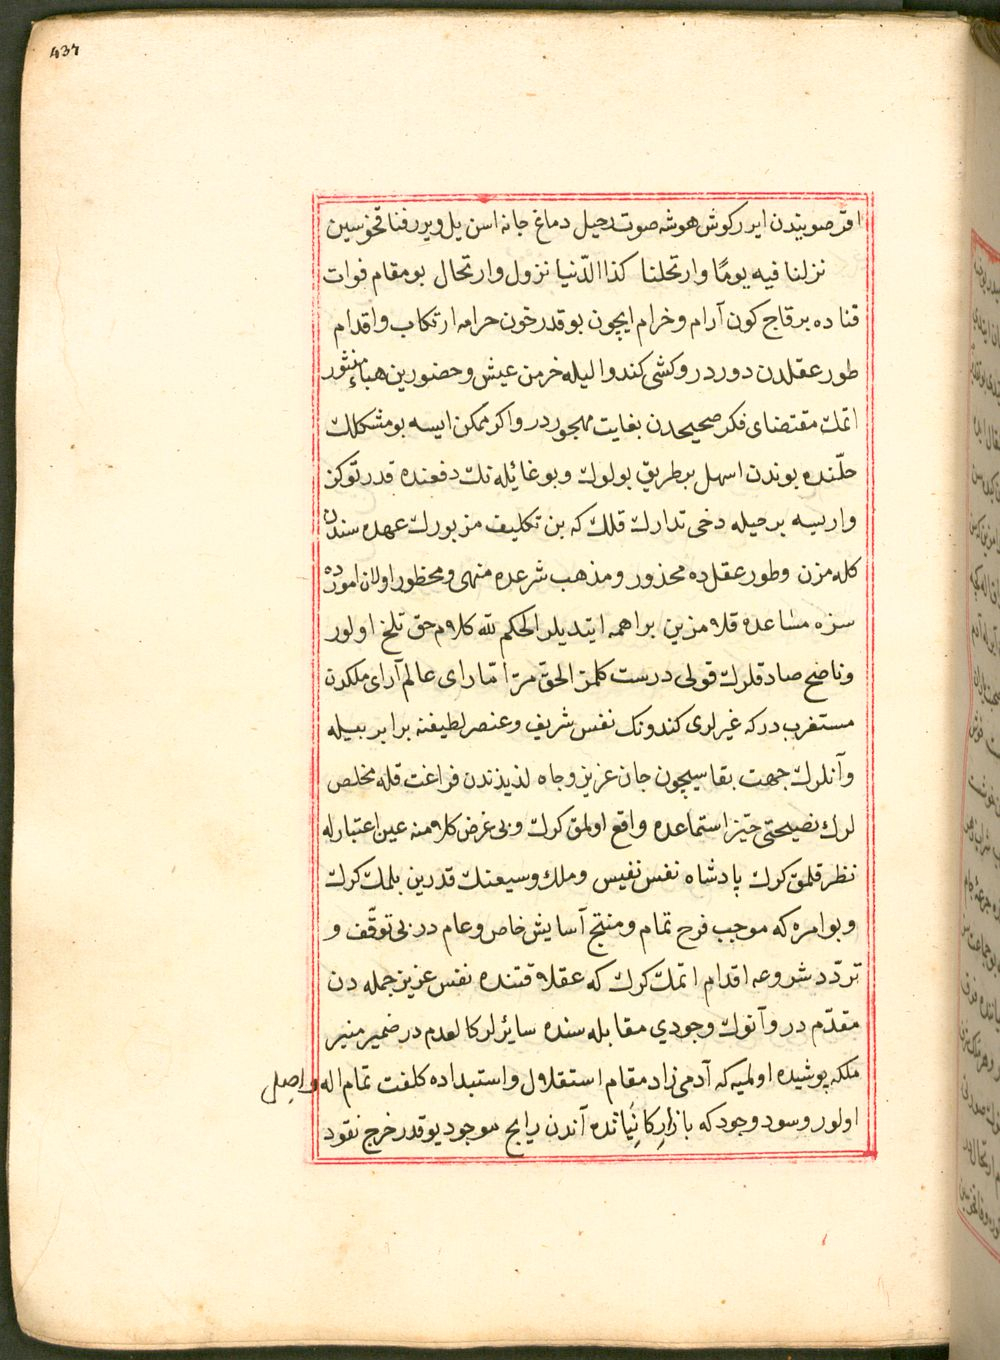 437
افتر صویتدن ایرر کوش هوشه صوت رحیل دماغ جانه اسن یل ویرر فنا قخوسین
نزلنا فیه یومًا وارتحلنا کذا الدّنیا نزول وارتحال بو مقام فوات
فناده برقاچ کون آرام وخرام ایچون بوقدر خون حرامه ارتکاب واقدام
طور عقلدن دور در وکشی کندو الیله خرمن عیش وحضورین هباءً منثور
اتمك مقتضای فکر صحیحدن بغایت مهجور در واکر ممکن ایسه بو مشکلك
حلّنده بوندن اسهل بر طریق بولوك وبو غائله نك دفعنده قدرتوکز
واریسه بر حیله دخی تدارك قلك که بن تکلیف مزبورك عهده سندن
کله مزن وطور عقلده محذور ومذهب شرعده منهی ومحظور اولان امورده
سزه مساعده قلامزین براهمه ایتدیلر الحکم لله کلام حق تلخ اولور
وناصح صادقلرك قولی درست کلمز الحقّ مرّ امّا رای عالم آرای ملکدن
مستغرب در که غیرلری کندونك نفس شریف وعنصر لطیفنه برابر بیله
وآنلرك جهت بقاسیچون جان عزیز وجاه لذیذندن فراغت قله مخلص
لرك نصیحتی حیّز استماعده واقع اولمق کرك وبی غرض کلامنه عین اعتبارله
نظر قلمق کرك پادشاه نفس نفیس وملك وسیعنك قدرین بلمك کرك
وبو امره که موجب فرح تمام ومنتج آسایش خاص وعام در بی توقّف و
تردّد شروعه اقدام اتمك کرك که عقلا قتنده نفس عزیز جمله دن
مقدّم در وآنوك وجودي مقابله سنده سائرلر کالعدم در ضمیر منیر
ملکه پوشیده اولمیه که آدمی زاد مقام استقلال واستبداده کلفت تمام اله واصل
اولور وسود وجود که بازار کائناتده آندن رابح موجود یوقدر خرج نقود